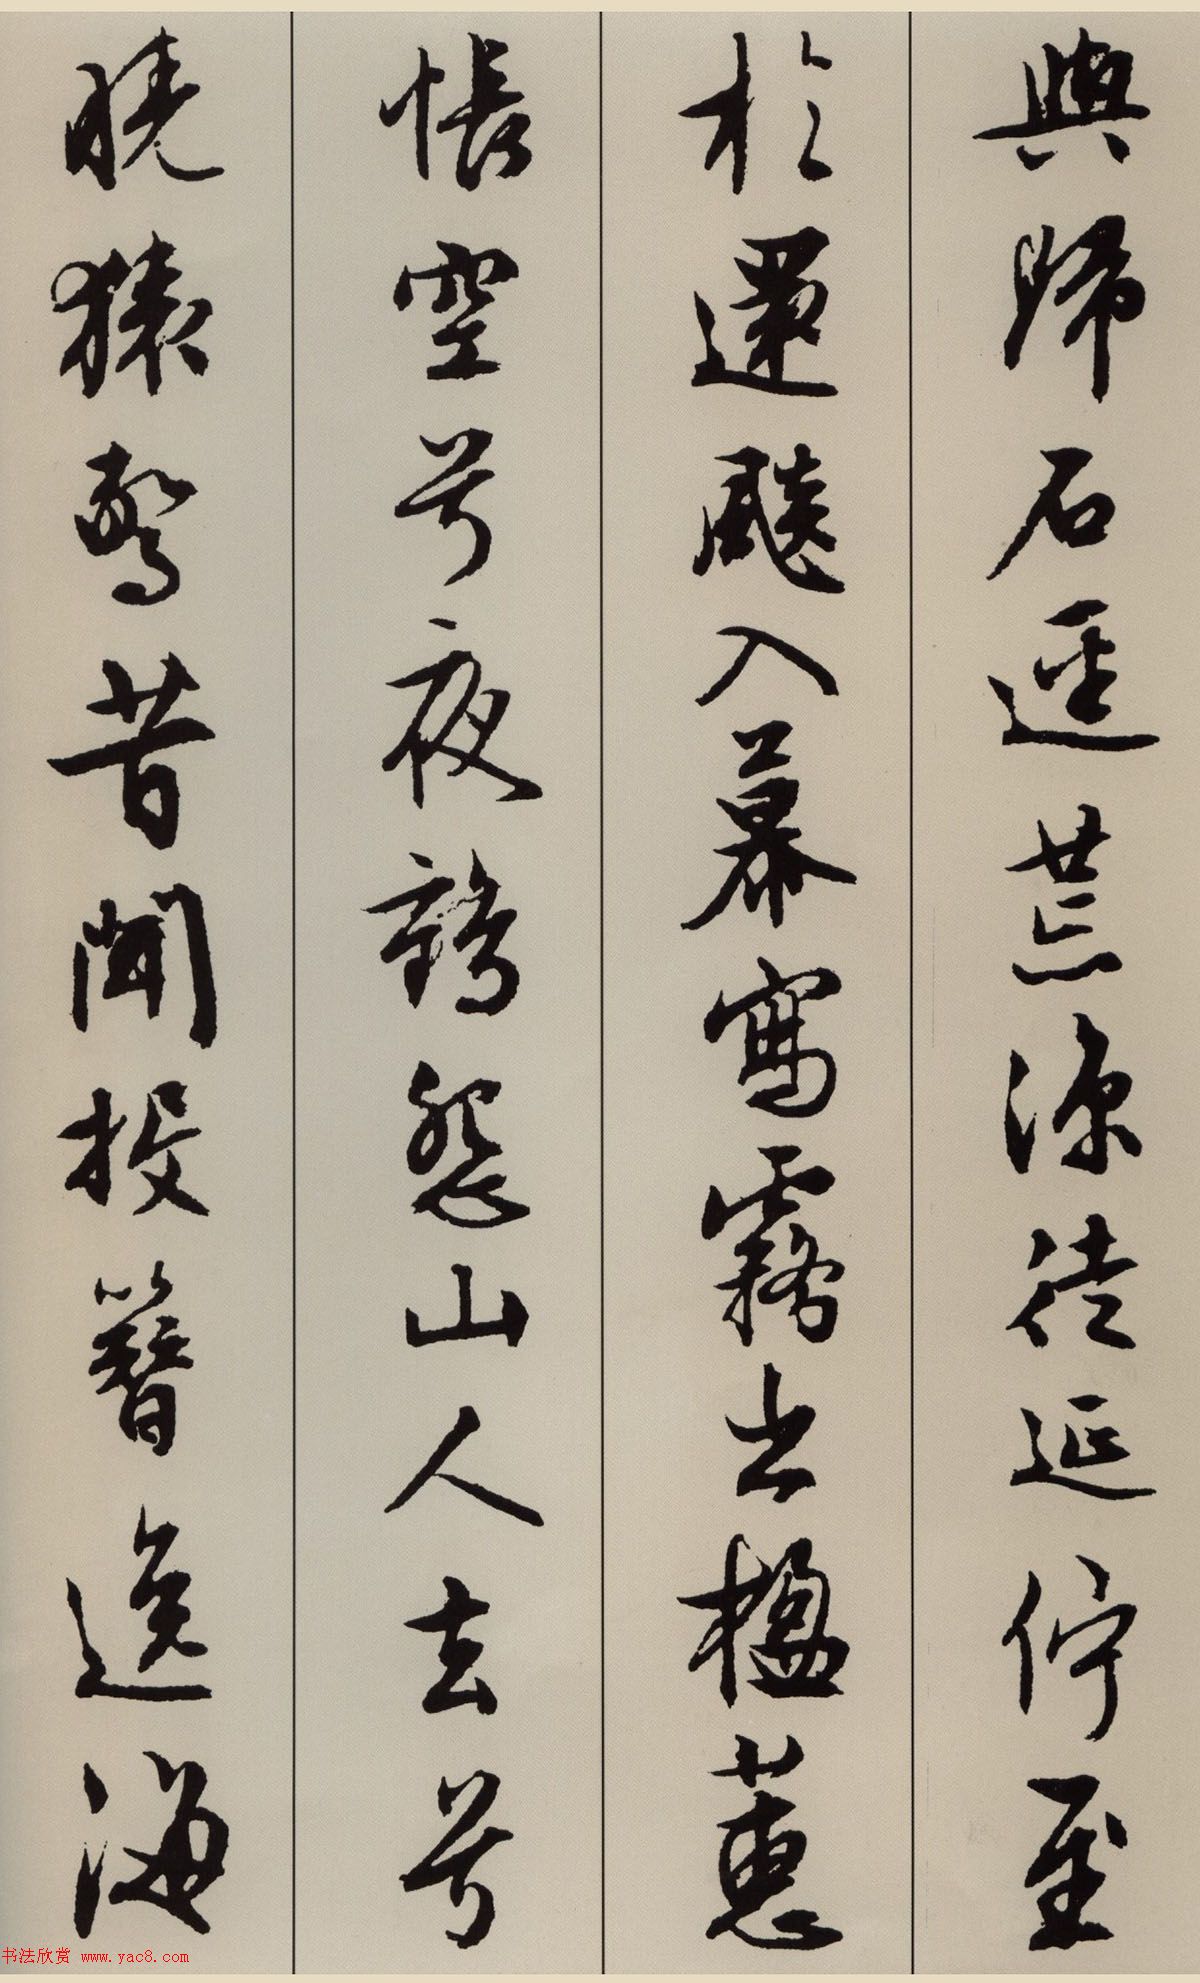 與歸石逕荒涼徒延佇至
於還飆入幕寫霧出楹蕙
悵空兮夜鶴怨山人去兮
曉猿驚昔聞投簪逸海
书法欣赏 www.yac8.com